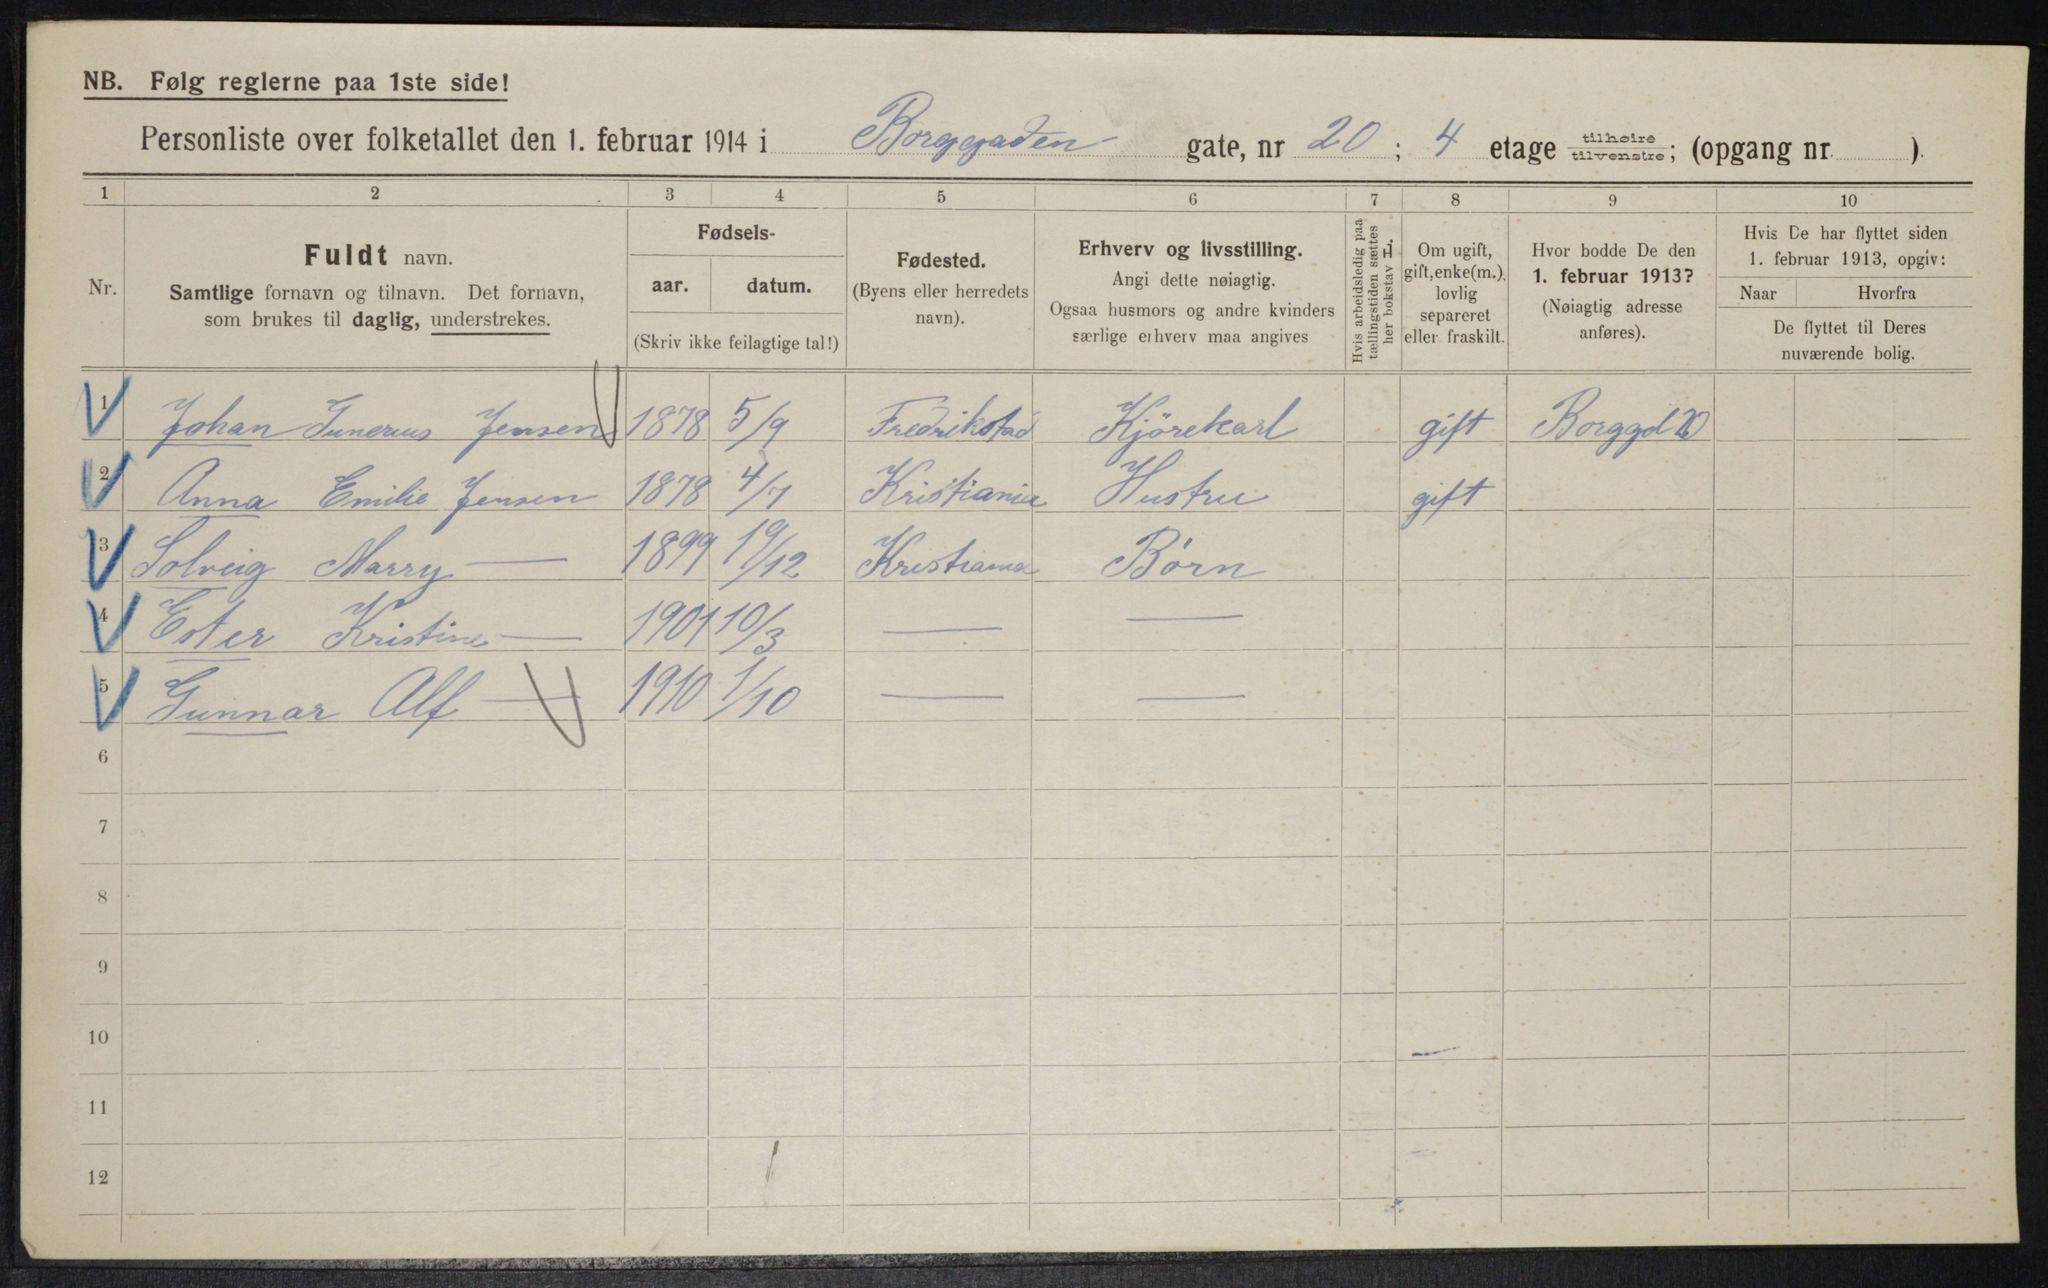 NB. Følg reglerne paa 1ste side!
Personliste over folketallet den 1. februar 1914 i Borggaden gate, nr 20; 4 etage tilhøire tilvenstre; (opgang nr. ).
1 2 3 4 5 6 7 8 9 10
Nr.
Fuldt navn.
Samtlige fornavn og tilnavn. Det fornavn,
som brukes til daglig, understrekes.
Fødsels-
aar. datum.
(Skriv ikke feilagtige tal!)
Fødested.
(Byens eller herredets
navn).
Erhverv og livsstilling.
Angi dette nøiagtig.
Ogsaa husmors og andre kvinders
særlige erhverv maa angives
Hvis arbeidsledig paa
tællingstiden sættes
her bokstav
Om ugift,
gift, enke(m.),
lovlig
separeret
eller fraskilt.
Hvor bodde De den
1. februar 1913?
(Nøiagtig adresse
anføres).
Hvis De har flyttet siden
1. februar 1913, opgiv:
Naar Hvorfra
De flyttet til Deres
nuværende bolig.
1 Johan Gunerius Jensen 1878 5/9 Fredrikstad Kjørekarl gift Borggd 20
2 Anna Emilie Jensen 1878 4/7 Kristiania Hustru gift
3 Solveig Marry — 1899 19/12 Kristiania Børn
4 Ester Kristine — 1901 10/3 — —
5 Gunnar Alf — 1910 1/10 — —
6
7
8
9
10
11
12